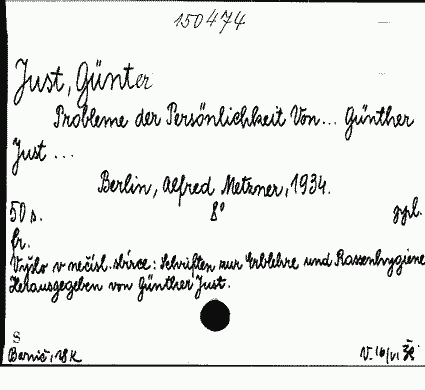 150474
Just, Günter
Probleme der Persönlichkeit Von... Günther
Just ...
Berlin, Alfred Metzner, 1934.
50 s. 8°
fr.
Vyšlo v nečísl. sbírce: Schriften zur Erblehre und Rassenhygiene
Herausgegeben von Günther Just.
S
V.